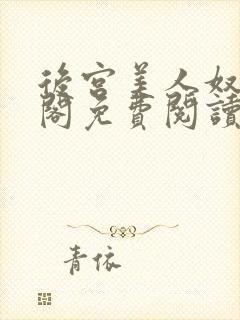 後宮美人奴
閣免費閱讀
青依